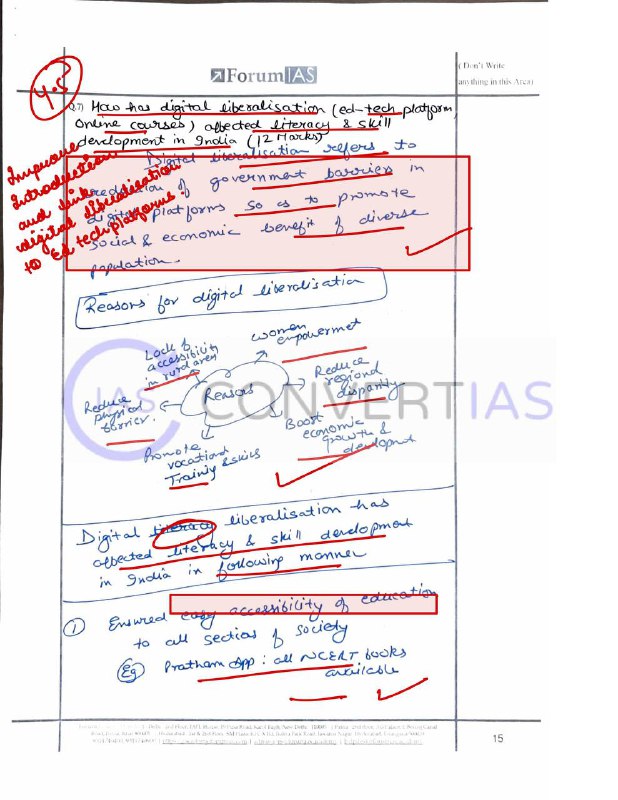 4.5
ForumIAS
( Don't Write
anything in this Area)
Q.7) How has digital liberalisation (ed-tech platform,
online courses) affected literacy & skill
development in India (12 Marks)
Improve
Introduction
and link
digital liberalisation
to Ed tech platforms.
Digital liberalisation refers to
reduction of government barriers in
digital platforms so as to promote
social & economic benefit of diverse
population.
Reasons for digital liberalisation
Reasons
Lack of
accessibility
in rural area
women
empowermet
Reduce
regional
disparity
Boost
economic
growth &
developmnt
Promote
vocational
Training & skills
Reduce
physical
barrier.
IAS CONVERTIAS
Digital literacy liberalisation has
affected literacy & skill development
in India in following manner
① Ensured easy accessibility of education
to all sections of society
Eg Pratham App : all NCERT books
available
15